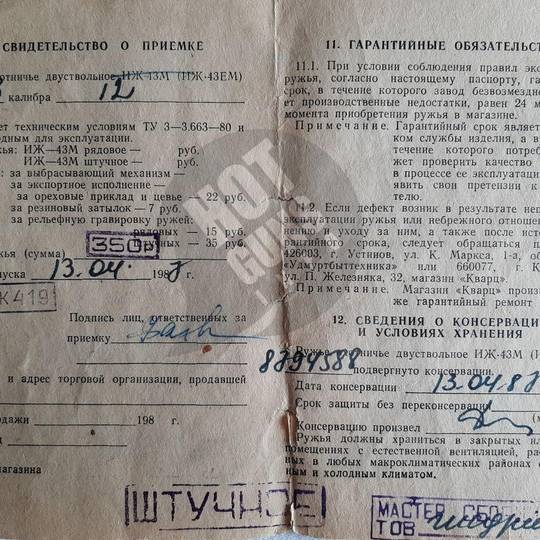 СВИДЕТЕЛЬСТВО О ПРИЕМКЕ
отничье двуствольное ИЖ-43М (ИЖ-43ЕМ)
калибра 12
ет техническим условиям ТУ 3—3.663—80 и
одным для эксплуатации.
ья: ИЖ—43М рядовое — руб.
ИЖ—43М штучное — руб.
: за выбрасывающий механизм —
за экспортное исполнение —
за ореховые приклад и цевье — 22 руб.
за резиновый затылок — 7 руб.
за рельефную гравировку ружей:
рядовых — 15 руб.
— 35 руб.
ья (сумма) 350
пуска 13.04. 1988 г.
К419
Подпись лиц, ответственных за
приемку
8794388
и адрес торговой организации, продавшей
одажи 198 г.
магазина
ШТУЧНОЕ
11. ГАРАНТИЙНЫЕ ОБЯЗАТЕЛЬСТ
11.1. При условии соблюдения правил экс
ружья, согласно настоящему паспорту, га
срок, в течение которого завод безвозмездно
ет производственные недостатки, равен 24 м
момента приобретения ружья в магазине.
Примечание. Гарантийный срок являет
ком службы изделия, а в
течение которого потреб
жет проверить качество
в процессе ее эксплуатаци
явить свои претензии к
телю.
11.2. Если дефект возник в результате неп
эксплуатации ружья или небрежного отношен
нению и уходу за ним, а также после исте
рантийного срока, следует обращаться п
426003, г. Устинов, ул. К. Маркса, 1-а, об
«Удмуртбыттехника» или 660077, г. К
ул. П. Железняка, 32, магазин «Кварц».
Примечание. Магазин «Кварц» произв
же гарантийный ремонт
12. СВЕДЕНИЯ О КОНСЕРВАЦИ
И УСЛОВИЯХ ХРАНЕНИЯ
Ружье охотничье двуствольное ИЖ-43М (И
подвергнуто консервации.
Дата консервации 13.04.88
Срок защиты без переконсервации
Консервацию произвел
Ружья должны храниться в закрытых ил
помещениях с естественной вентиляцией, рас
ных в любых макроклиматических районах с
ным и холодным климатом.
МАСТЕР СБО
ТОВ
HOT
GUNS